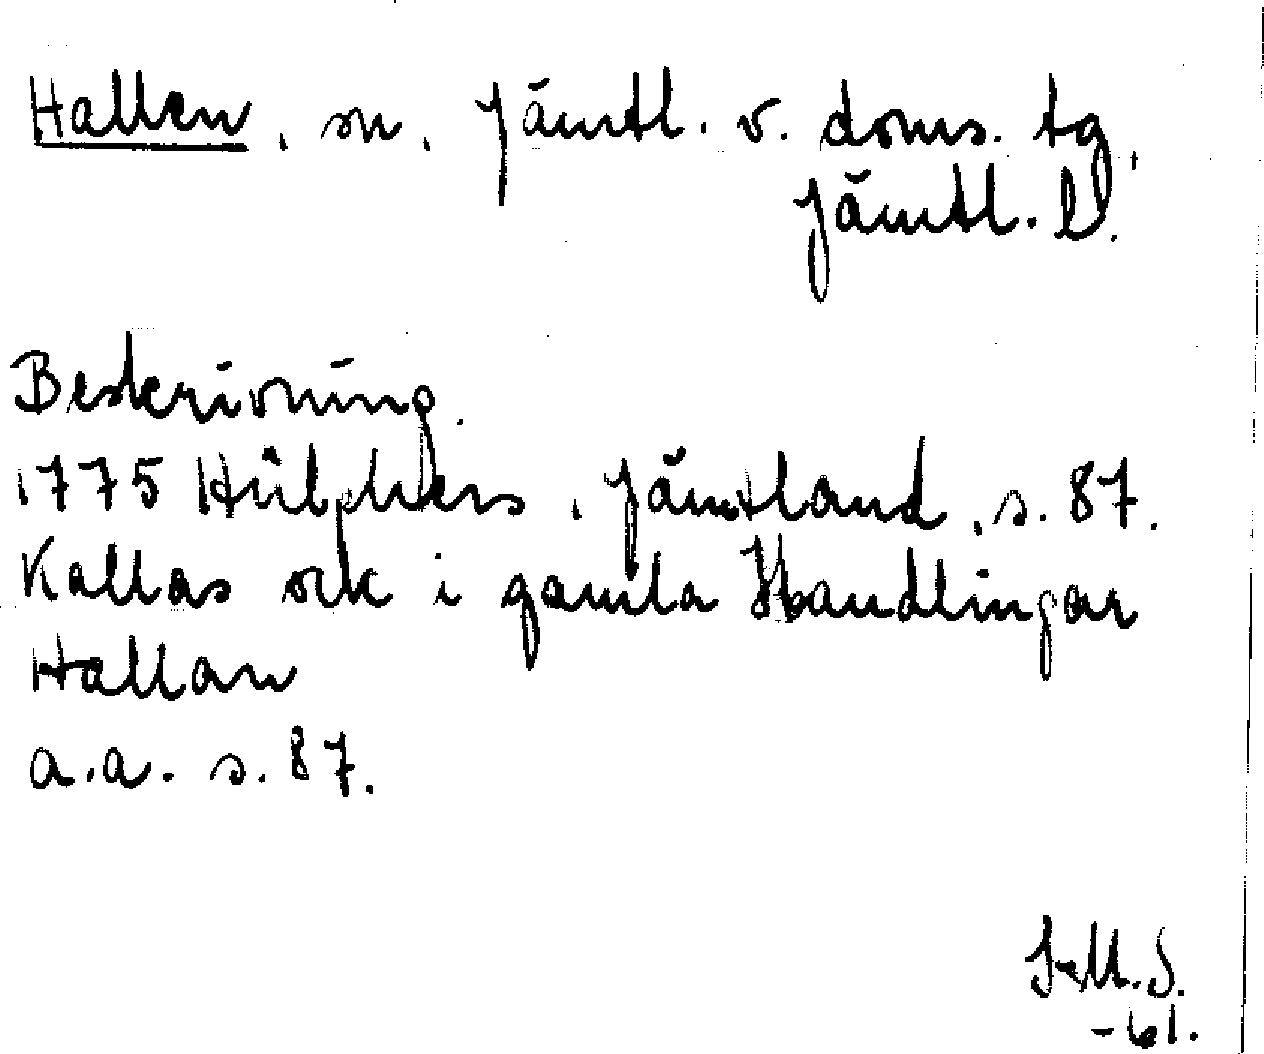 Hallen, sn, Jämtl. v. doms. tg,
Jämtl. l.
Beskrivning.
1775 Hülphers, Jämtland, s. 87.
Kallas ock i gamla Handlingar
Hallan
a.a. s. 87.
-61.